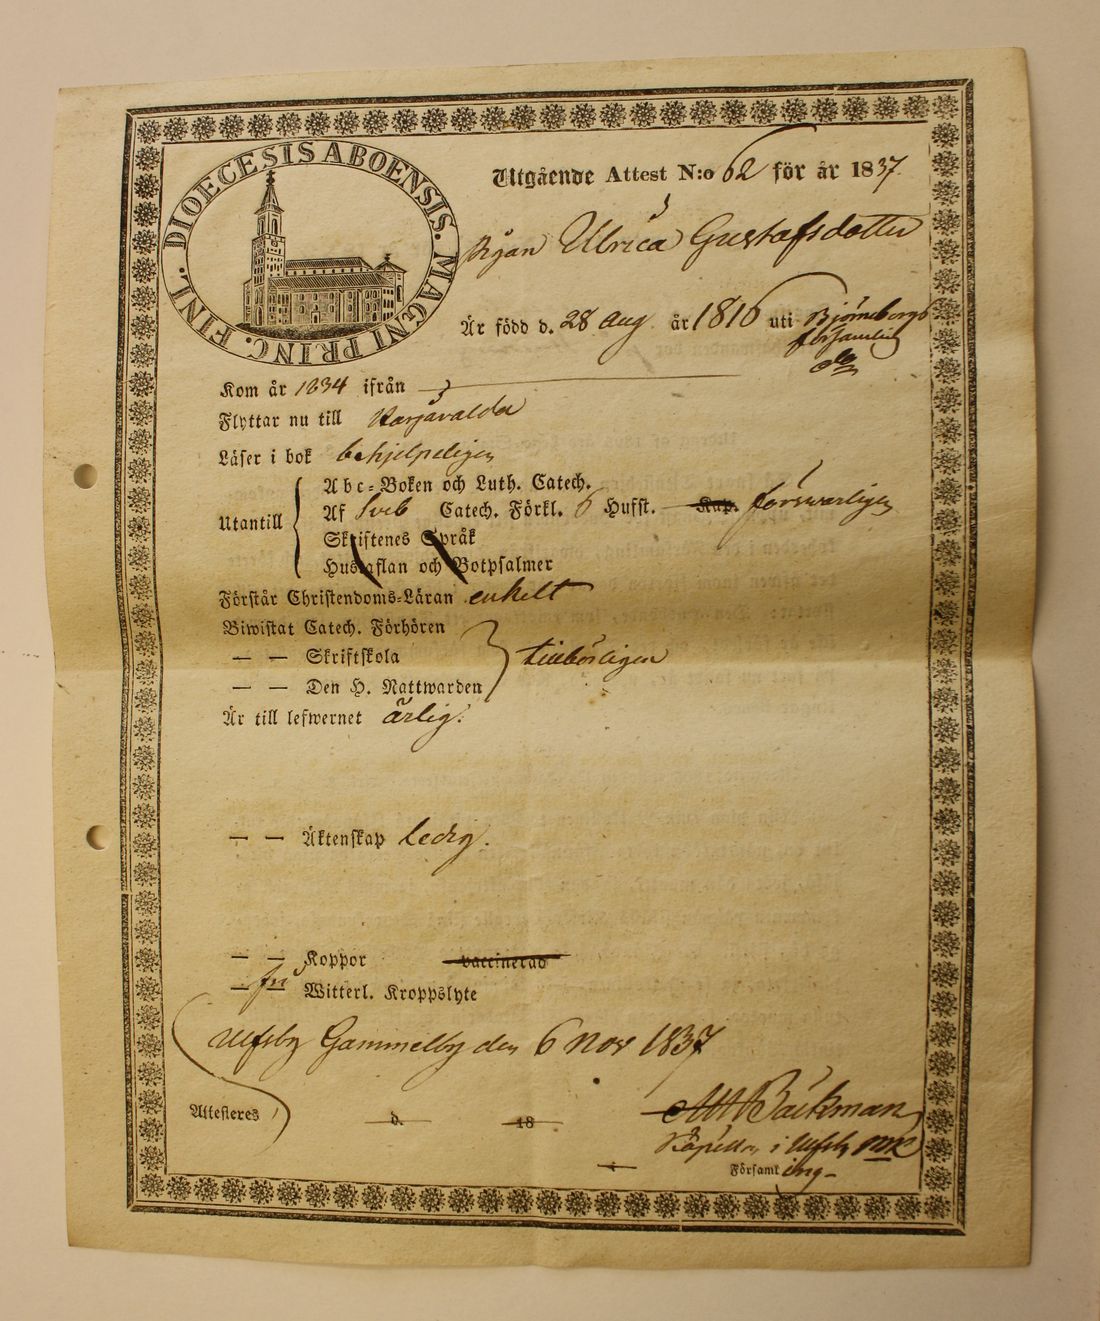 DIOECESIS ABOENSIS. MAGNI PRINC. FINL.
Utgående Attest N:o 62 för år 1837.
Pigan Ulrica Gustafsdotter
Är född d. 28 Aug år 1816 uti Björneborgs
församling
Kom år 1834 ifrån
Flyttar nu till Harjavalda
Läser i bok behjelpeligen
Utantill
Abc-Boken och Luth. Catech.
Af Sveb Catech. Förkl. 6 Hufst. Kap. försvarligen
Skriftenes Språk
Hustaflan och Botpsalmer
Förstår Christendoms-Läran enkelt
Biwistat Catech. Förhören
— — Skriftskola tillbörligen
— — Den H. Nattwarden
Är till lefwernet ärlig.
— — Äktenskap ledig.
— — Koppor vaccinerad
— fri — Witterl. Kroppslyte
Ulfsby Gammelby den 6 Nov 1837
Attesteres d. 18
Bäckman
i Ulfsby
Församling